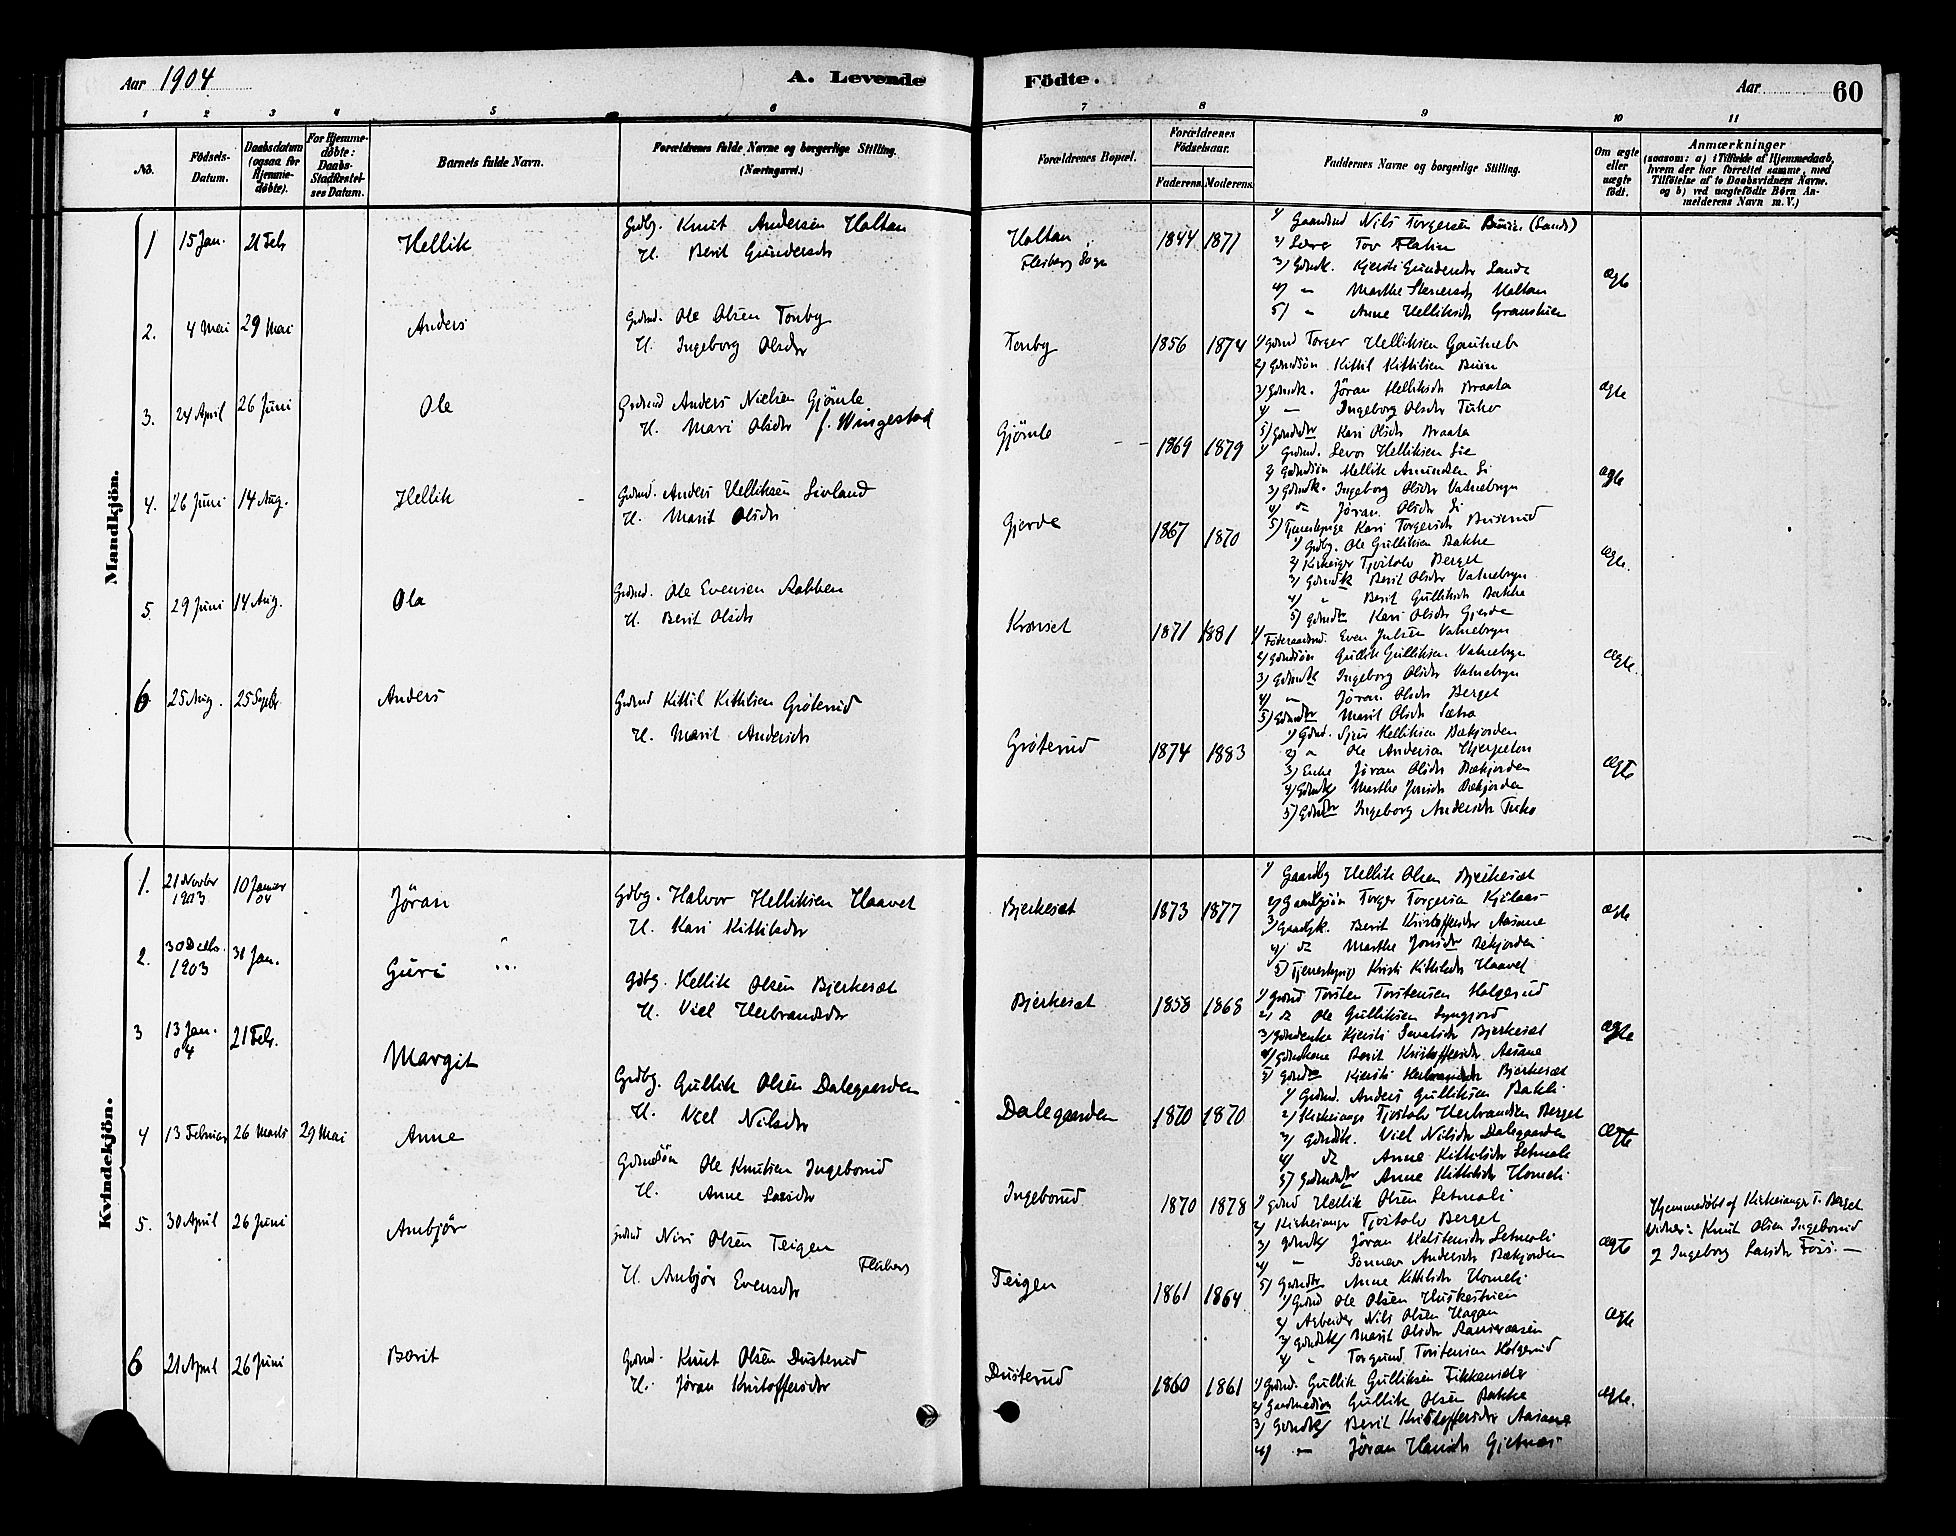 Aar 1904
A. Levende Födte.
Aar 60
1 2 3 4 5 6 7 8 9 10 11
No.
Födsels-Datum.
Daabsdatum (ogsaa for Hjemmedøbte).
For Hjemmedøbte: Daabs-Stadfæstelses Datum.
Barnets fulde Navn.
Forældrenes fulde Navne og borgerlige Stilling. (Næringsvei.)
Forældrenes Bopæl.
Forældrenes Födselsaar.
Faderens. Moderens.
Faddernes Navne og borgerlige Stilling.
Om ægte eller uægte født.
Anmærkninger
(saasom: a) i Tilfælde af Hjemmedaab, hvem der har forrettet samme, med Tilføielse af to Daabsvidners Navne. og b) ved uægtefödte Börn Anmelderens Navn m. V.)
Mandkjön.
1 15 Jan. 21 Feb Hellik
Gdbg. Knut Andersen Haltan
H. Berit Gundersdr
Haltan
Flesberg Sogn
1844 1871
1/ Gaardmd Nils Torgersen (Sands)
2/ Lærer Tov Flatin
3/ Gdmdk. Kjersti Gundersdr Sande
4/ " Marthe Haltan
5/ " Anne Helliksdr
Ægte
2. 4 Mai 29 Mai Anders
Grdmd. Ole Olsen Tonby
H. Ingeborg Olsdr
Tonby
1856 1874
1/ Gdmd Torger Helliksen
2/ Gdmdsön Kittil Kittilsen
3/ Gdmdk. Jöran Helliksdr Braata
4/ — Ingeborg Olsdr
5/ Gdmddtr Kari Olsdr Braata
Ægte
3. 24 April 26 Juni Ole
Grdmd Anders Nielsen Gjömle
H. Mari Olsdr f. Wingestad
Gjömle
1869 1879
1/ Grdmd. Levor Helliksen Lie
2/ Gdmdsön Hellik Amundsen Li
3/ Gdmdk. Ingeborg Olsdr Vatnebryn
4/ do Jöran Olsdr Li
5/ Tjenestepige Kari Torgersdr
Ægte
4. 26 Juni 14 Aug. Hellik
Grdmd. Anders Helliksen Livland
H. Marit Olsdr
Gjerde
1867 1870
1/ Grdbg. Ole Gulliksen Bakke
2/ Kirkesgr Tjostolv Berget
3/ Gdmdk Berit Olsdr Vatnebryn
4/ " Berit Gulliksdr Bakke
5/ Gdmdtr Kari Olsdr Gjerde
Ægte.
5 29 Juni 14 Aug. Ola
Grdmd. Ole Evensen Bakken
H. Berit Olsdr
1871 1881
1/ Föderaadmd. Even Vatnebryn
2/ Gdmdsön Gullik Gulliksen Vatnebryn
3/ Gdmdk Ingeborg Olsdr Vatnebryn
4/ " Jöran Olsdr Berget
5/ Gdmdtr Marit Olsdr Sætra
Ægte.
6 25 Aug. 25 Septbr Anders
Grdmd Kittil Kittilsen Gröterud
H. Marit Andersdr
Gröterud
1874 1883
1/ Gdmd. Helliksen Bækjorden
2/ " Ole Andersen
3/ Enke Jöran Olsdr Bækjorden
4/ Gdmdk Marthe Jonsdr Bækjorden
5/ Gdmdtr Ingeborg Andersdr
Ægte
Kvindekjön.
1. 21 Novbr 1903 10 Januar 04 Jöran
Gdbg. Halvor Helliksen Haavet
H. Kari Kittilsdr
Bjerkesæt
1873 1877
1/ Gaardbg Hellik Olsen Bjerkesæt
2/ Torger Torgersen
3/ Gaardbk. Berit Kristoffersdr Aasane
4/ do Marthe Jonsdr Bekjorden
5/ Tjenestepige Kristi Kittilsdr Haavet
Ægte
2. 30 Decbr. 1903 31 Jan. Guri
Gdbg. Hellik Olsen Bjerkesæt
H. Viel Herbrandsdr
Bjerkesæt
1858 1868
1/ Grdmd Torsten Torstensen Holgerud
2/ do Ole Gulliksen
3/ Gdmdenke Kjersti Bjerkesæt
4/ Gdmdkone Berit Kristoffersdr Aasane
5/ Kjersti Herbrandsdr Bjerkesæt
Ægte
3 13 Jan. 04 21 Feb. Margit
Grdbg. Gullik Olsen Dalegaarden
H. Viel Nilsdr
Dalegaarden
1870 1870
1/ Grdmd. Anders Gulliksen Bakke
2/ Kirkesangr Tjostolv Herbrandsen Berget
3/ Gdmdk. Viel Nilsdr Dalegaarden
4/ do Anne Kittilsdr Letmoli
5/ Gdmddtr Anne Kittilsdr Homeli
Ægte
4 13 Februar 26 Marts 29 Mai Anne
Gdmdsön Ole Knutsen Ingeborud
H. Anne Larsdr
Ingeborud
1870 1878
1/ Gdmd Hellik Olsen Letmoli
2/ Kirkesangr Tjostolv Berget
3/ Gdmdk Jöran Halstensdr Letmoli
4/ " Sønnev Andersdr Bækjorden
5/ Gdmdtr Anne Kittilsdr Homeli
Ægte
Hjemmedöbt af Kirkesangr T. Berget
Vidner: Knut Olsen Ingeborud
& Ingeborg Larsdr Foss. —
5. 30 April 26 Juni Ambjör
Grdmd Nils Olsen Teigen
H. Ambjör Evensdr Flesberg
Teigen
1861 1864
1/ Grdmd Ole Olsen
2/ Arbeider Nils Olsen Hagan
3/ Gdmdk Marit Olsdr
4/ " Torgund Torstensen Holgerud
Ægte
6 21 April 26 Juni Berit
Grdmd. Knut Olsen Dusterud
H. Jöran Kristoffersdr
Dusterud
1860 1861
1/ Grdmd. Gullik Gulliksen
2/ Gaardmdsön Gullik Olsen Bakke
3/ Gdmdk Berit Kristoffersdr Aasane
4/ " Jöran Hansdr
Ægte.